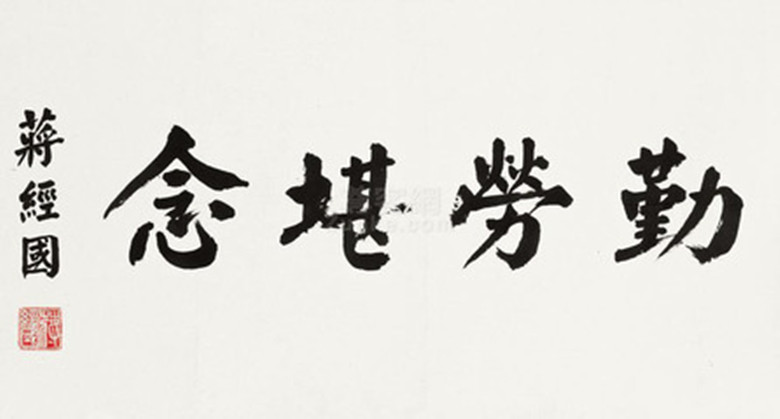 勤勞堪念
蔣經國